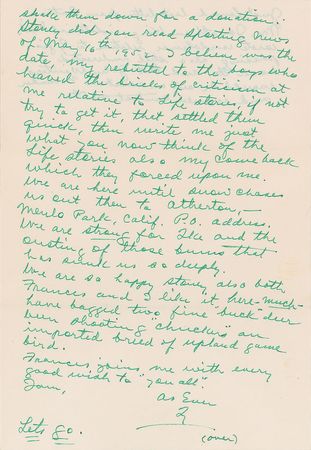 shake them down for a donation.
Stoney did you read Sporting News
of May 16th 1952, I believe was the
date, my rebuttal to the boys who
heaved the bricks of criticism at
me relative to Life stories, if not
try to get it, that settled them
quick, then write me just
what you now think of the
Life stories also my Come back
which they forced upon me.
We are here until snow chases
us out then to Atherton,—
Menlo Park, Calif. P.O. address.
We are strong for Ike and the
ousting of those bums that
has sunk us so deeply.
We are so happy Stoney, also both
Frances and I like it here "much"
have bagged two fine buck deer
been shooting chuckers" an
imported breed of upland game
bird.
Frances joins me with every
good wish to "you all".
As Ever
Ty
Lets go.
(over)